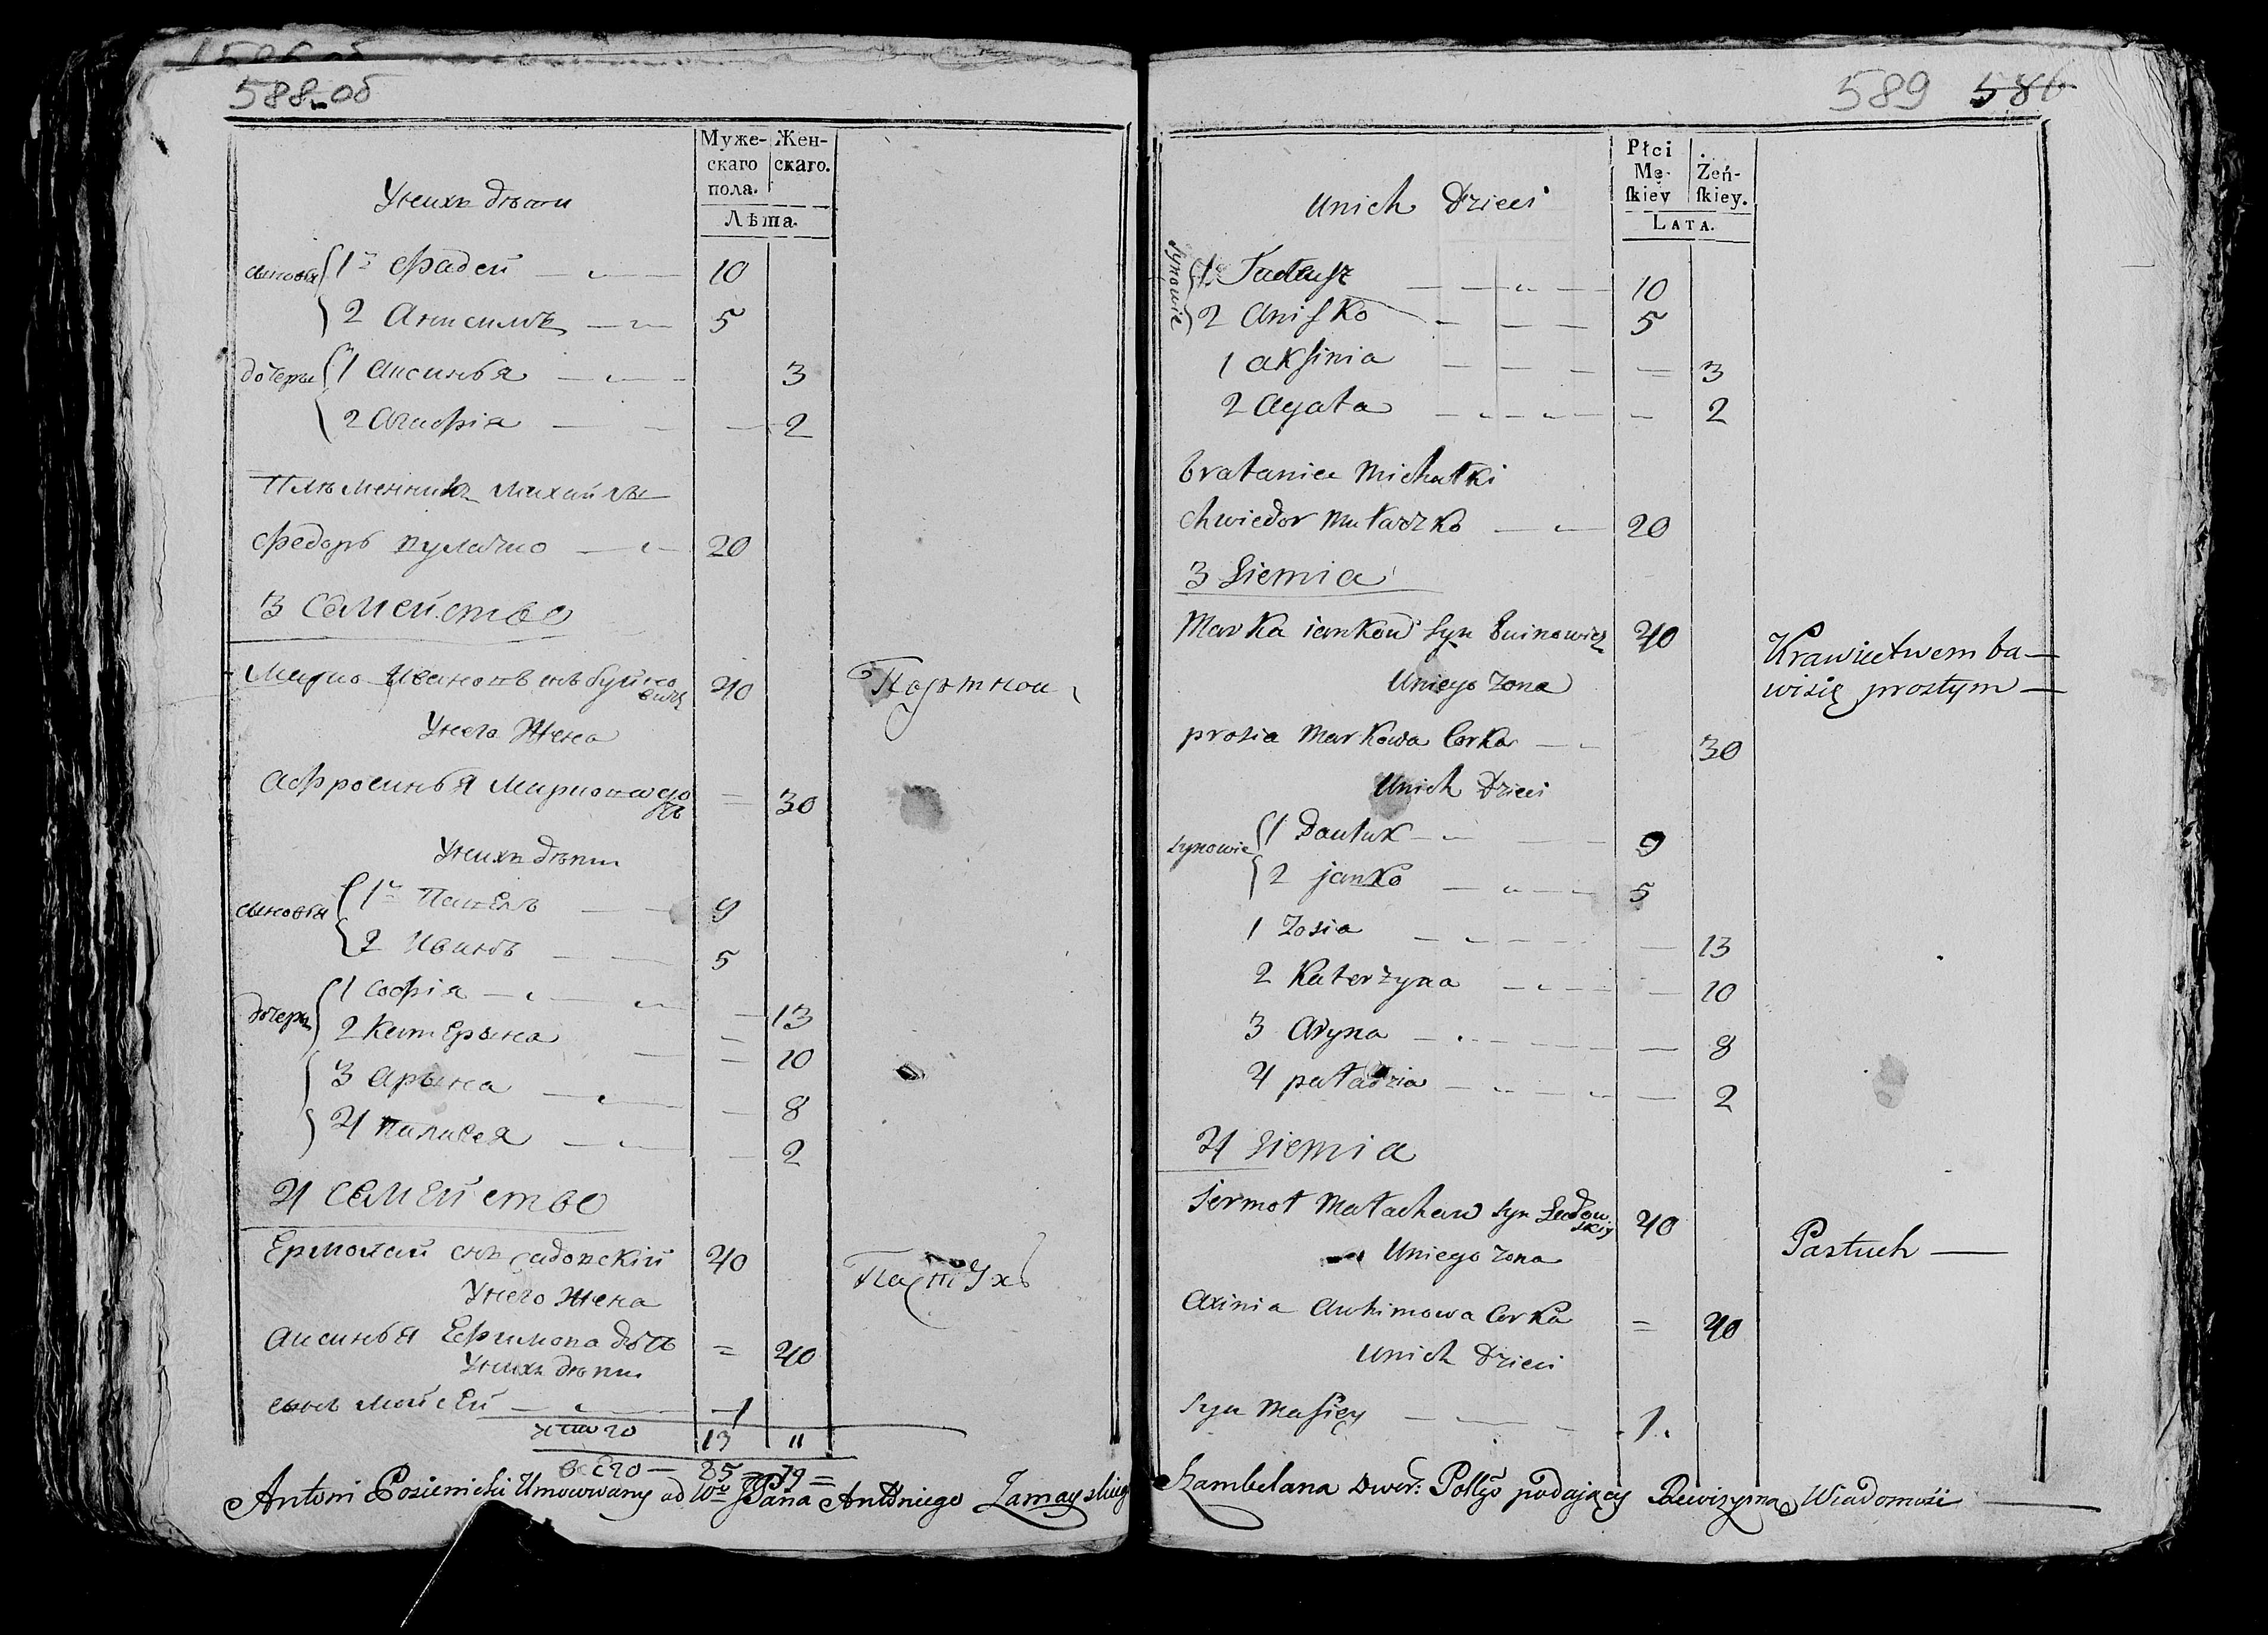 588 об
Муже-
скаго
пола.
Жен-
скаго.
Лѣта.
Унихъ дѣти
сыновья
1й Фадей 10
2 Анисимъ 5
дочеры
1 Аксинья 3
2 Агафія 2
Племенникъ Михайлы
Федоръ 20
3 Семейство
Марко Ивановъ снъ Буйновичъ 40
Портной
Унего Жена
Афросинья Маркова дочь = 30
Унихъ дѣти
сыновья
1й Павелъ 9
2 Иванъ 5
дочеры
1 Софія 13
2 Катерына = 10
3 Арына 8
4 Палагея 2
4 Семейство
Ермолай снъ Садовскій 40
Пастухъ
Унего жена
Аксинья Ефимова дочь = 40
Унихъ дѣти
сынъ Мойсей 1
итого 13 11
всего — 35 = 39 =
Antoni Umocowany od Wo JPana Antoniego Zamay
589 586
Płci
Mę-
ſkiey
Żeń-
ſkiey.
LATA.
Unich Dzieci
Synowie
1. Tadeuſz 10
2 Aniſko 5
1 akſinia 3
2 Agata 2
bratanica Michałki
Chwiedor 20
3 Siemia
Marka iankow Syn Buinowicz 40
Krawiectwem ba—
wisię prostym —
Uniego zona
prosia Markowa Corka 30
Unich Dzieci
synowie
1 Pauluk 9
2 janko 5
1 Zosia 13
2 Katerzyna 10
3 Aryna 8
4 pałazia 2
4 Siemia
jermoł Małachow Syn Sadowskiy 40
Pastuch —
Uniego zona
Axinia Auchimowa Corka = 40
Unich Dzieci
Syn Maſiey 1.
Szambelana Dwor: Polſgo podający Rewizyiną Wiadomość